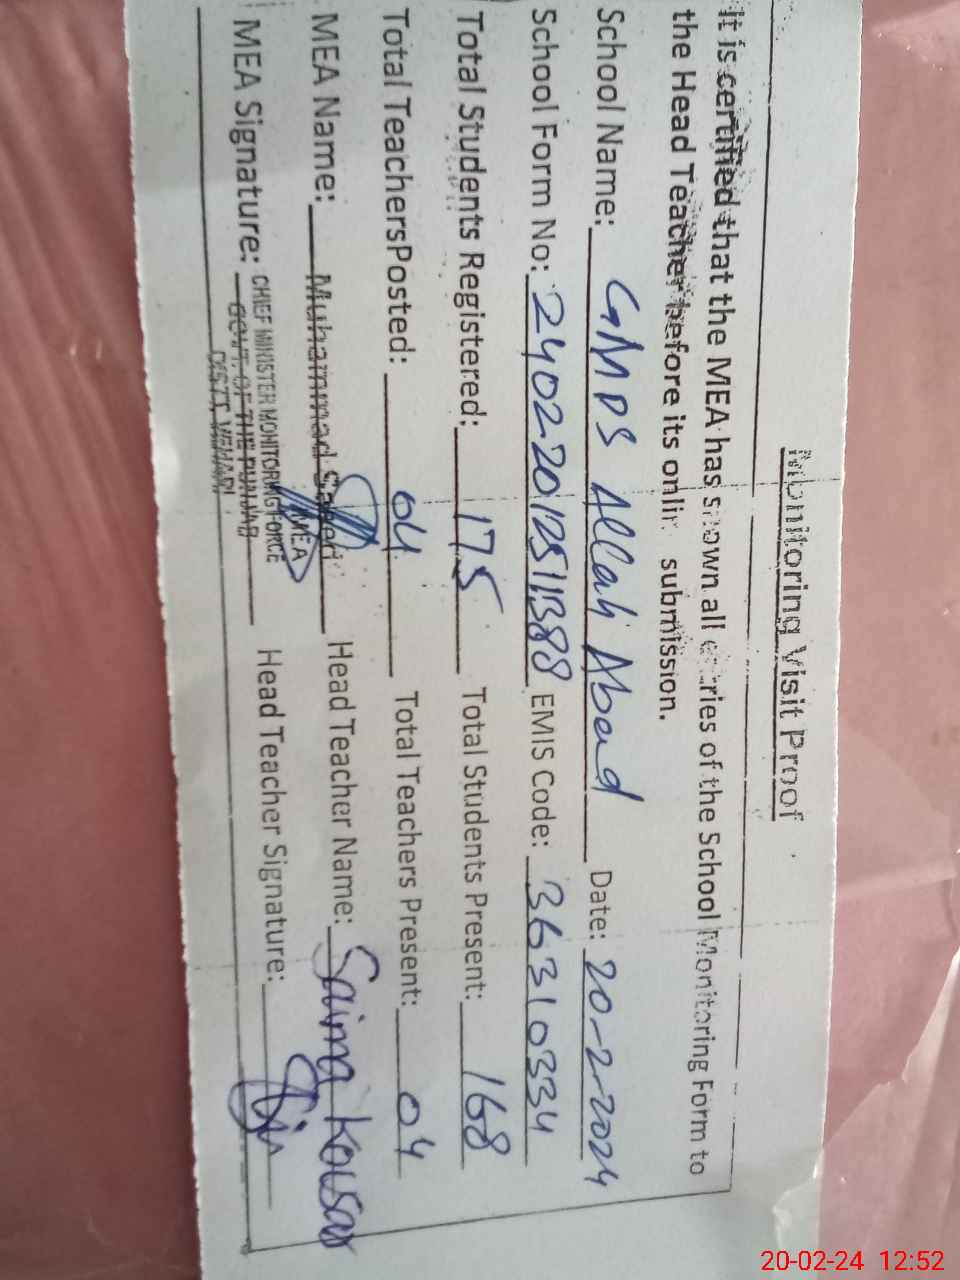 Monitoring Visit Proof
It is certified that the MEA has shown all entries of the School Monitoring Form to
the Head Teacher before its online submission.
School Name: GMPS Allah Abad Date: 20-2-2024
School Form No: 24022012511388 EMIS Code: 36310334
Total Students Registered: 175 Total Students Present: 168
Total TeachersPosted: 04 Total Teachers Present: 04
MEA Name: Muhammad Saeed Head Teacher Name: Saima Kousar
MEA Signature: Head Teacher Signature:
MEA
CHIEF MINISTER MONITORING FORCE
GOVT. OF THE PUNJAB
DISTT. VEHARI
20-02-24 12:52